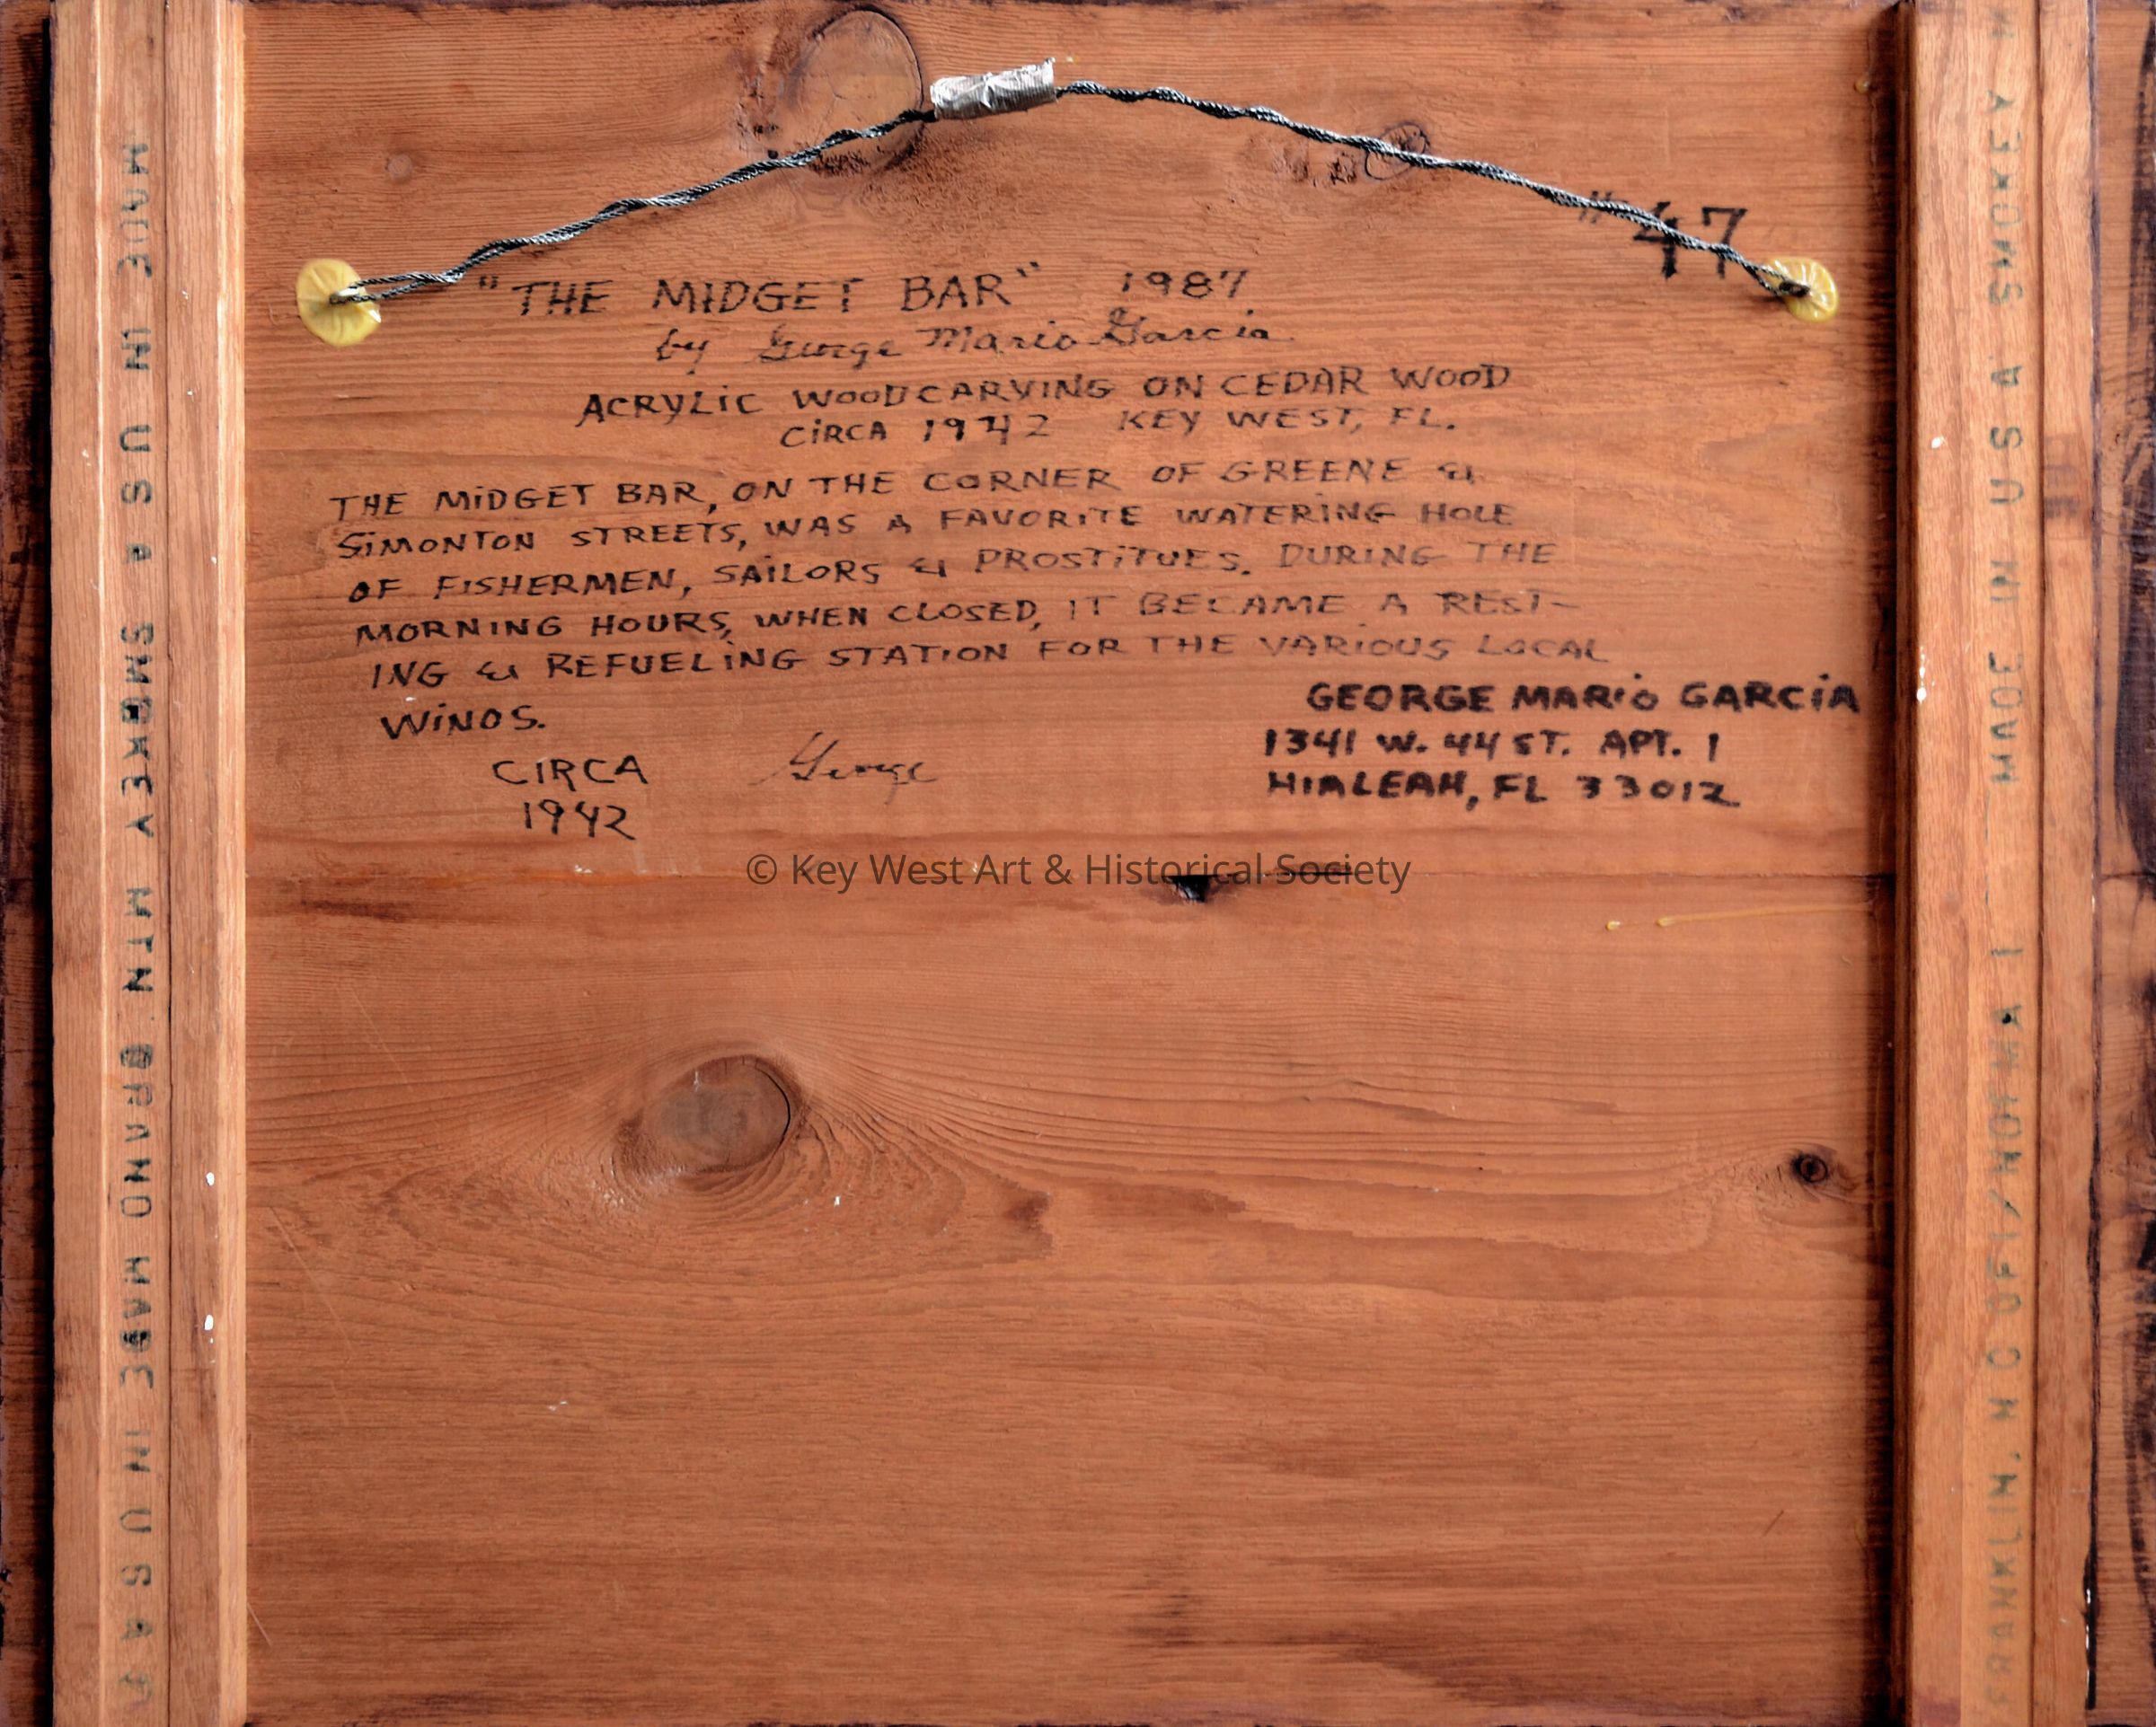 " 47
"THE MIDGET BAR" 1987
by George Mario Garcia
ACRYLIC WOODCARVING ON CEDAR WOOD
CIRCA 1942 KEY WEST, FL.
THE MIDGET BAR, ON THE CORNER OF GREENE &
SIMONTON STREETS, WAS A FAVORITE WATERING HOLE
OF FISHERMEN, SAILORS & PROSTITUES. DURING THE
MORNING HOURS, WHEN CLOSED, IT BECAME A REST-
ING & REFUELING STATION FOR THE VARIOUS LOCAL
WINOS.
CIRCA
1942
George
GEORGE MARIO GARCIA
1341 W. 44 ST. APT. 1
HIALEAH, FL 33012
© Key West Art & Historical Society
MADE IN USA SMOKEY MTN BRAND MADE IN USA
FRANKLIN, N C MADE IN U S A SMOKEY M